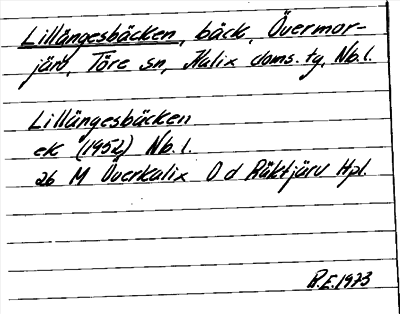 Lillängesbäcken, bäck, Övermor-
järv, Töre sn, Kalix doms. tg, Nb.l.
Lillängesbäcken
ek (1952) Nb.l.
26 M Överkalix O d Räktjärv Hpl.
R.E. 1973